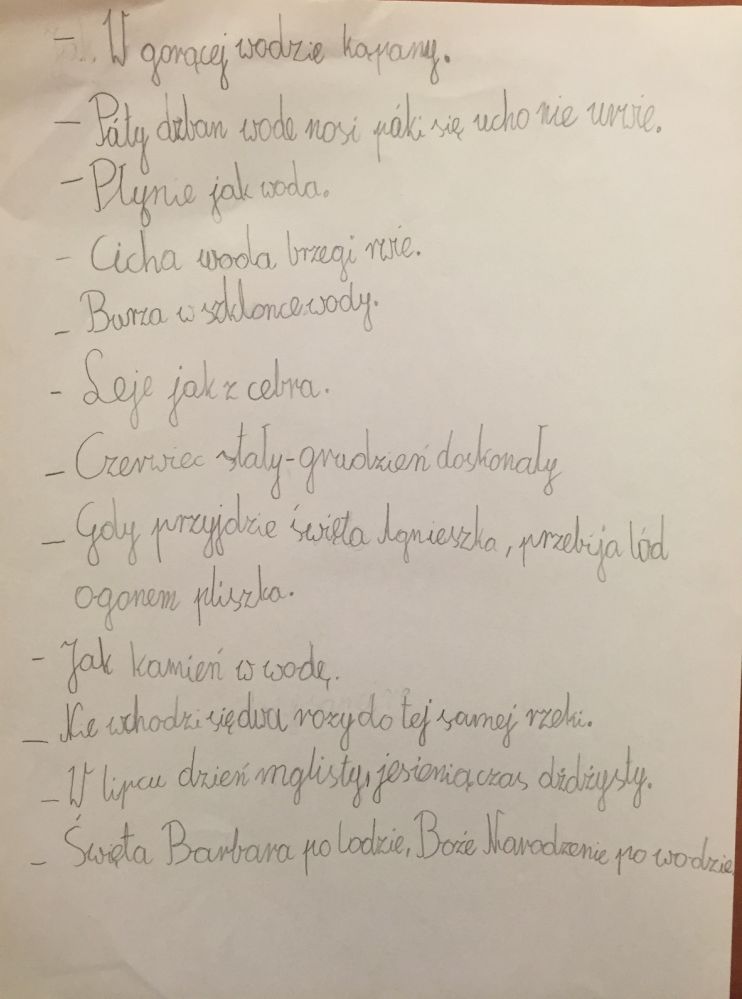 - W gorącej wodzie kąpany.
- Páty dzban wodę nosi páki się ucho nie urwie.
- Płynie jak woda.
- Cicha woda brzegi rwie.
- Burza w szklance wody.
- Leje jak z cebra.
- Czerwiec stały-grudzień doskonały
- Gdy przyjdzie święta Agnieszka, przebija lód
ogonem pliszka.
- Jak kamień w wodę.
- Nie wchodzi się dwa razy do tej samej rzeki.
- W lipcu dzień mglisty, jesienią czas dżdżysty.
- Święta Barbara po lodzie, Boże Narodzenie po wodzie